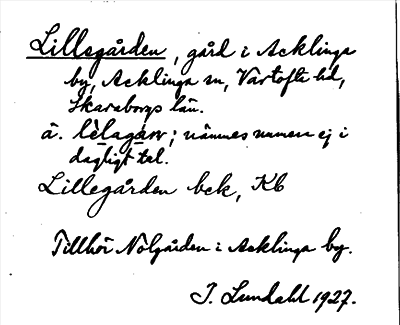 Lillsgården, gård i Acklinga
by, Acklinga sn, Vartofta hd,
Skaraborgs län.
ä. lèlagaɷ; nämnes numera ej i
dagligt tal.
Lillegården bek, Kb
Tillhör Nolgården i Acklinga by.
J. Lundahl 1927.